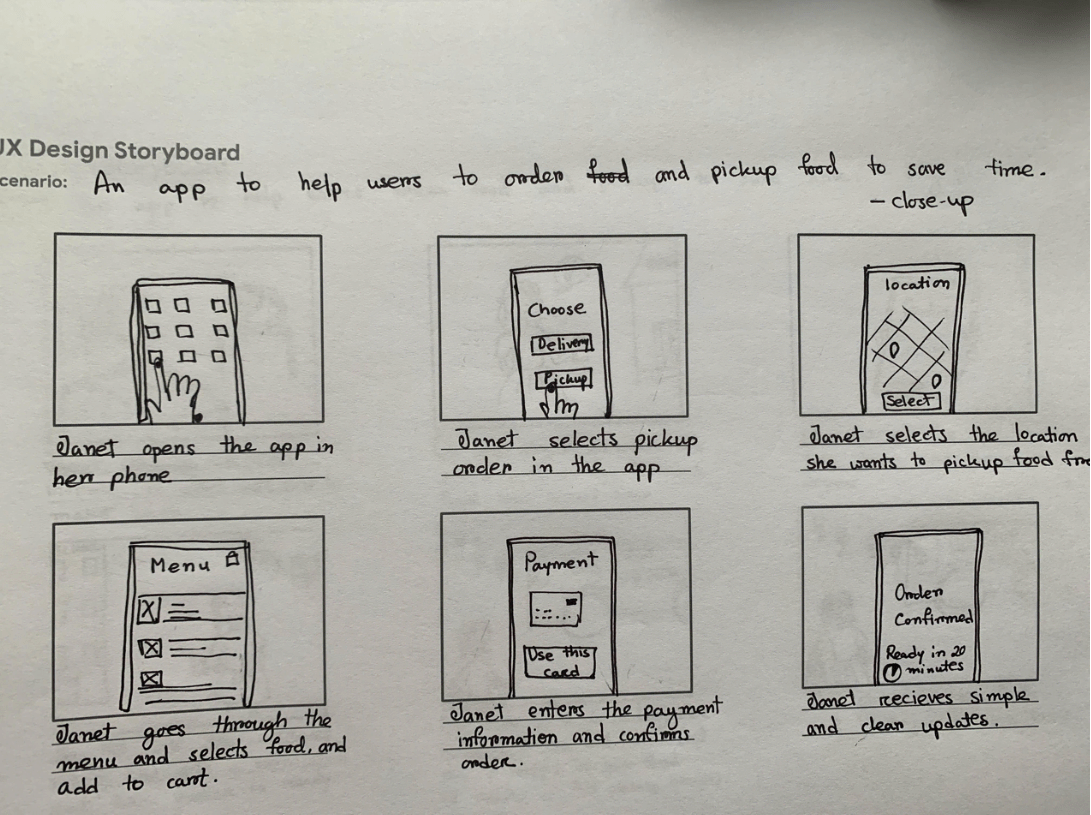 UX Design Storyboard
cenario: An app to help users to order food and pickup food to save time.
– close-up
Choose
Delivery
Pickup
location
Select
Janet opens the app in
her phone
Janet selects pickup
order in the app
Janet selects the location
she wants to pickup food fro
Menu
Payment
Use this
card
Order
Confirmed
Ready in 20
minutes
Janet goes through the
menu and selects food, and
add to cart.
Janet enters the payment
information and confirms
order.
Janet recieves simple
and clear updates.